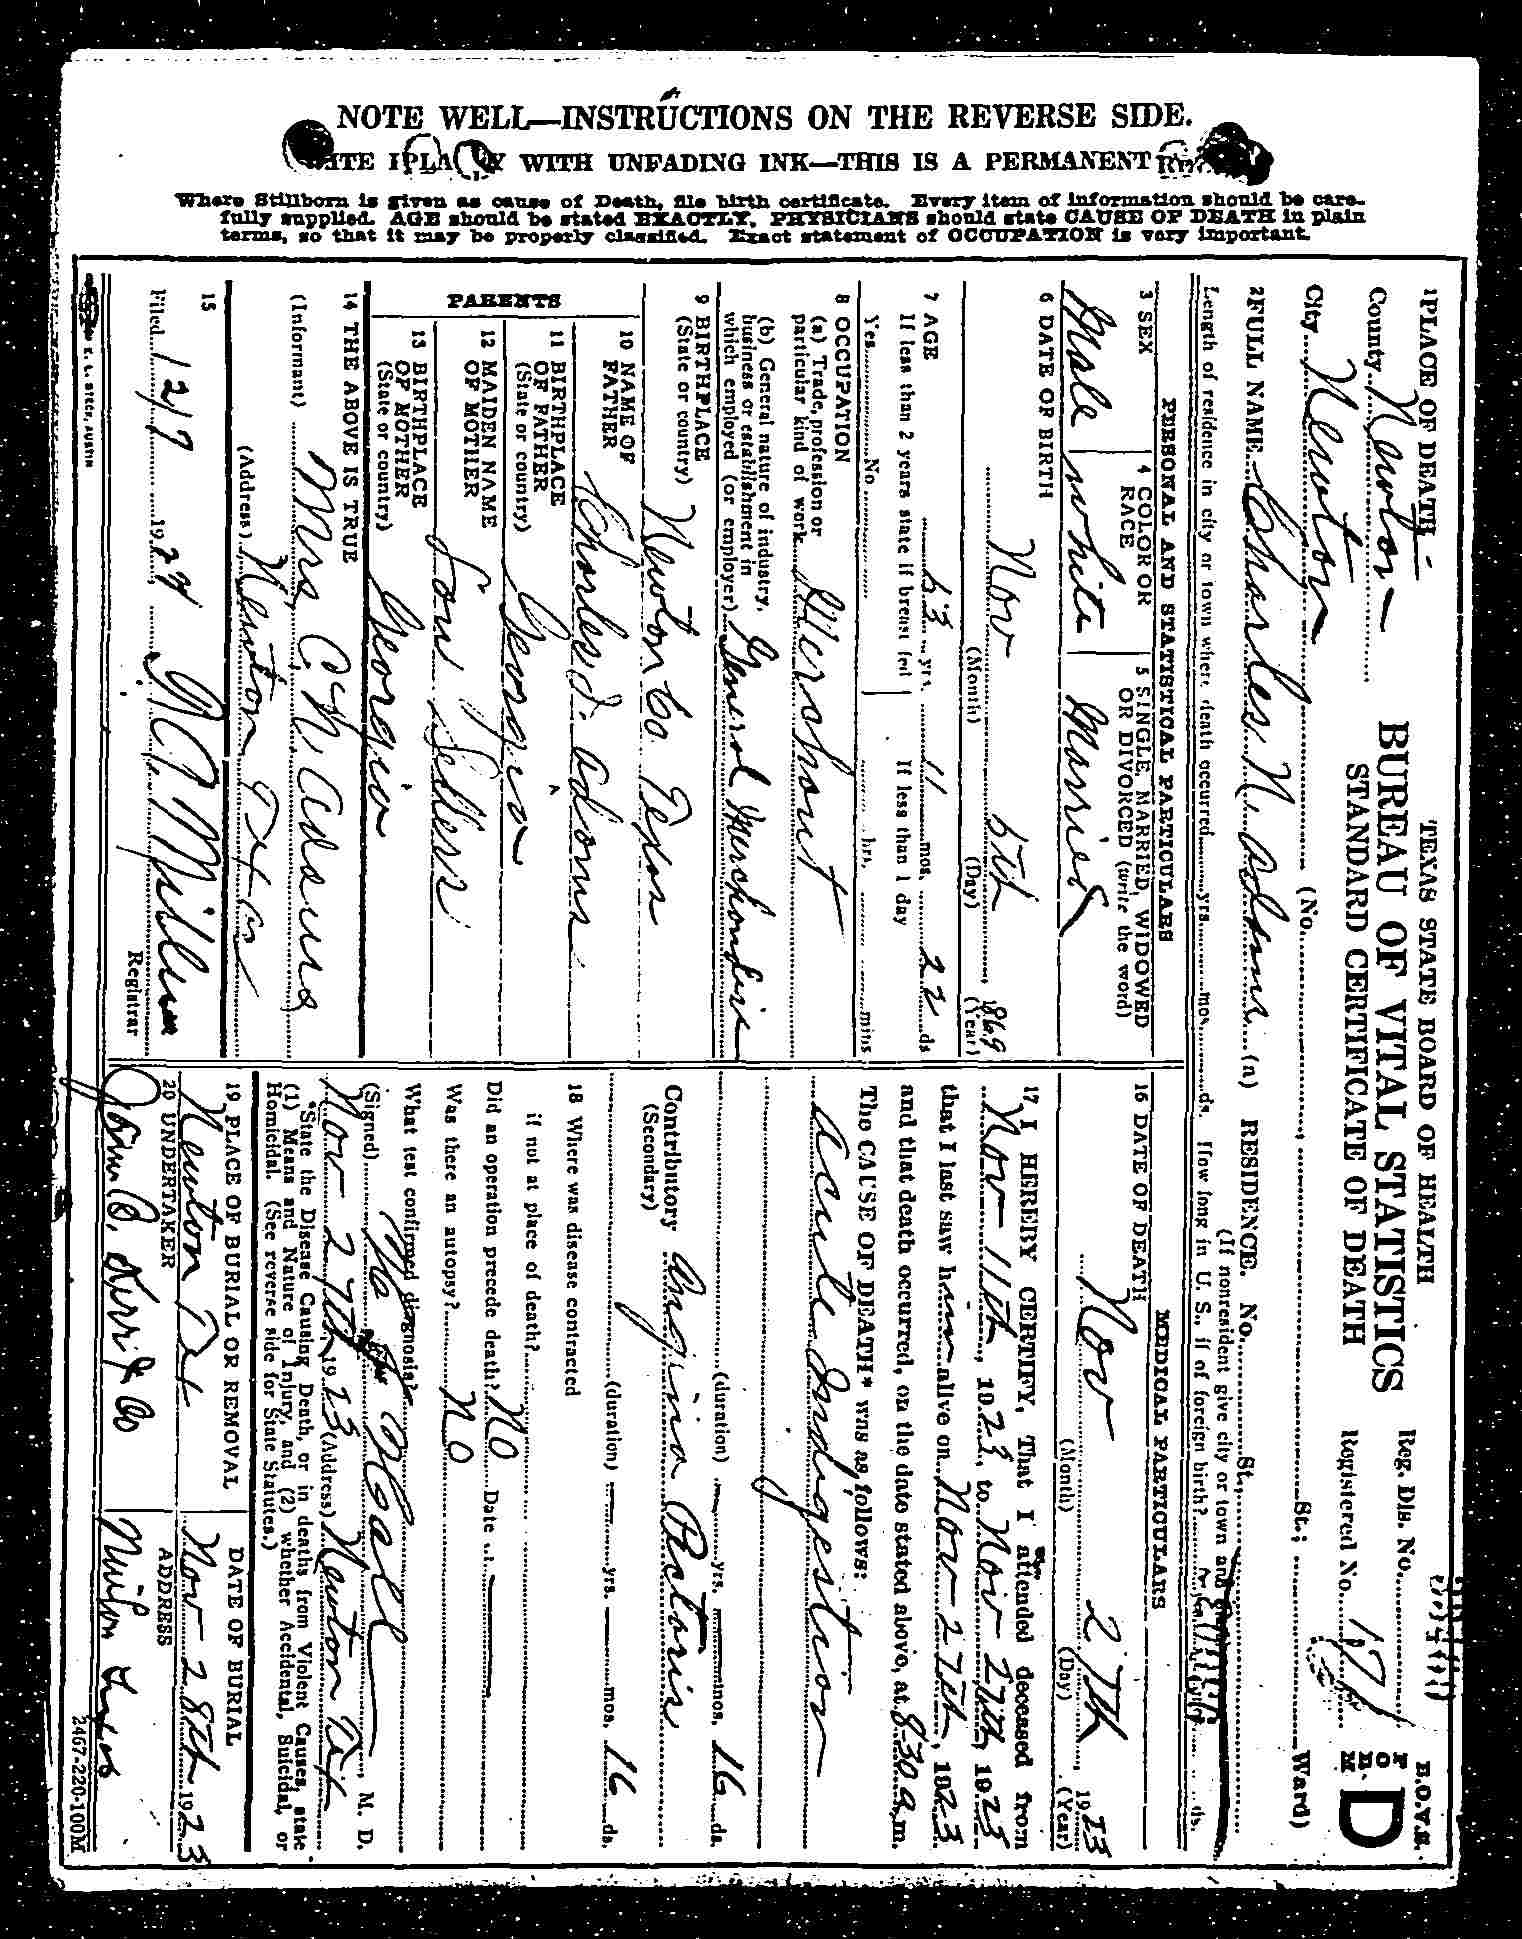 NOTE WELL—INSTRUCTIONS ON THE REVERSE SIDE.
WITH UNFADING INK—THIS IS A PERMANENT
Where Stillborn is given as cause of Death, file birth certificate. Every item of information should be care-
fully supplied. AGE should be stated EXACTLY. PHYSICIANS should state CAUSE OF DEATH in plain
terms, so that it may be properly classified. Exact statement of OCCUPATION is very important.
TEXAS STATE BOARD OF HEALTH
BUREAU OF VITAL STATISTICS
STANDARD CERTIFICATE OF DEATH
B.O.V.S.
FORM D
Reg. Dis. No.
Registered No. 171
1 PLACE OF DEATH
County Newton
City Newton (No. St.; Ward)
2 FULL NAME Charles N. Adams (a) RESIDENCE. No. St.,
(If nonresident give city or town and
Length of residence in city or town where death occurred yrs. mos. ds. How long in U. S., if of foreign birth? ds.
PERSONAL AND STATISTICAL PARTICULARS
3 SEX
Male
4 COLOR OR RACE
White
5 SINGLE, MARRIED, WIDOWED OR DIVORCED (write the word)
Married
6 DATE OF BIRTH
Nov 5th, 1869
(Month) (Day) (Year)
7 AGE 53 yrs. 11 mos. 22 ds
If less than 2 years state if breast fed
Yes No
If less than 1 day
hrs. mins
8 OCCUPATION
(a) Trade, profession or
particular kind of work Merchant
(b) General nature of industry,
business or establishment in
which employed (or employer) General Merchandise
9 BIRTHPLACE
(State or country) Newton Co Texas
PARENTS
10 NAME OF FATHER Charles J. Adams
11 BIRTHPLACE OF FATHER
(State or country) Georgia
12 MAIDEN NAME OF MOTHER
13 BIRTHPLACE OF MOTHER
(State or country) Georgia
14 THE ABOVE IS TRUE
(Informant) Mrs C. N. Adams
(Address) Newton
15
Filed 12/7 1923 Miller
Registrar
MEDICAL PARTICULARS
16 DATE OF DEATH
Nov 27th, 1923
(Month) (Day) (Year)
17 I HEREBY CERTIFY, That I attended deceased from
Nov 11th, 1923, to Nov 27th 1923
that I last saw him alive on Nov 27th, 1923
and that death occurred, on the date stated above, at 8-30 a.m.
The CAUSE OF DEATH* was as follows:
Acute Indigestion
(duration) yrs. mos. 16 ds.
Contributory Angina Pectoris
(Secondary)
(duration) yrs. mos. 16 ds.
18 Where was disease contracted
if not at place of death?
Did an operation precede death? No Date
Was there an autopsy? No
What test confirmed diagnosis?
(Signed) M. D.
Nov 27th 1923 (Address) Newton Tex
*State the Disease Causing Death, or in deaths from Violent Causes, state
(1) Means and Nature of Injury, and (2) whether Accidental, Suicidal, or
Homicidal. (See reverse side for State Statutes.)
19 PLACE OF BURIAL OR REMOVAL
Newton Tex
DATE OF BURIAL
Nov 28th 1923
20 UNDERTAKER
& Co
ADDRESS
Newton Texas
E. L. STECK, AUSTIN
2467-220-100M